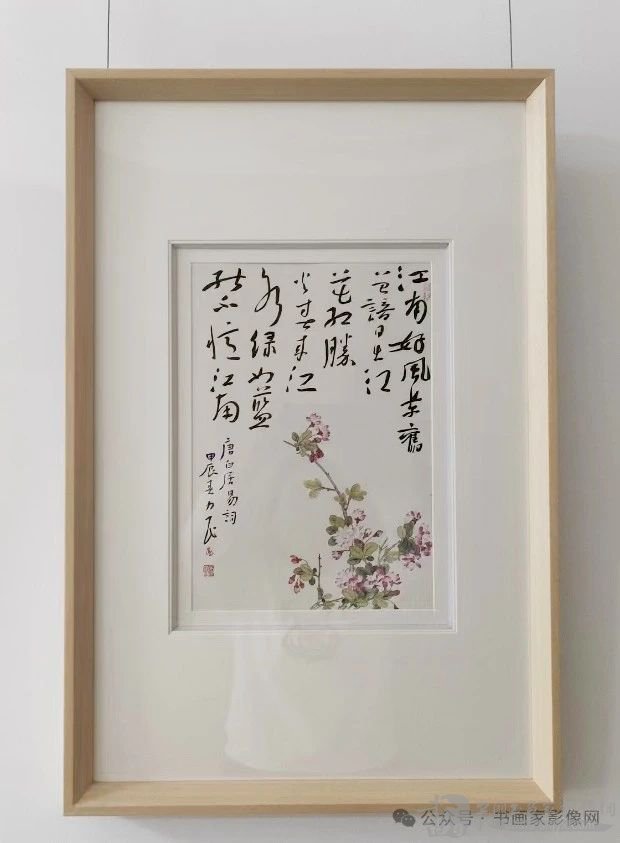 江南好風景舊
曾諳日出江
花红勝
火春来江
水绿如藍
能不憶江南
唐白居易詞
甲辰春
公众号·书画家影像网